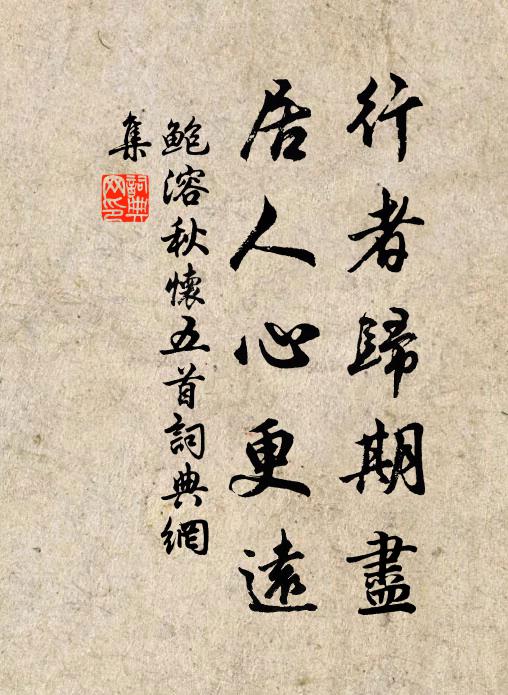 行者歸期盡
居人心更遠
鮑溶秋懷五首詞典網
集
詞典網印